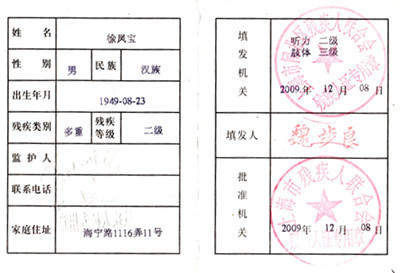 姓 名 徐凤宝
性 别 男 民族 汉族
出生年月 1949-08-23
残疾类别 多重 残疾等级 二级
监护人
联系电话
家庭住址 海宁路1116弄11号
填发机关
听力 二级
肢体 三级
2009. 年 12 月 08 日
填发人
批准机关
上海市残疾人联合会
2009 年 12 月 08 日